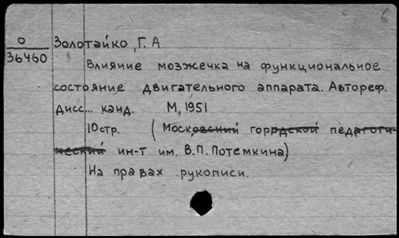 О Золотайко, Г. А
36460
Влияние мозжечка на функциональное
состояние двигательного аппарата. Автореф.
дисс... канд. М, 1951
10стр. (Московский городской педагоги-
ческий ин-т им. В.П. Потемкина)
На правах рукописи.